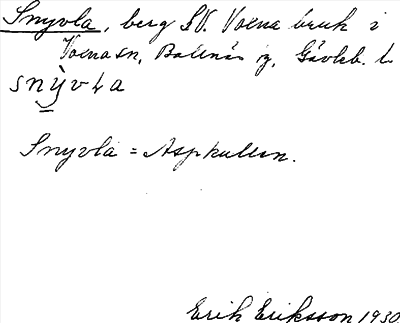 Snyvla, berg SV. Voxna bruk i
Voxna sn, Bollnäs fg, Gävleb. l.
snỳvLa
Snyvla = Aspkullen.
Erik Eriksson 1930.